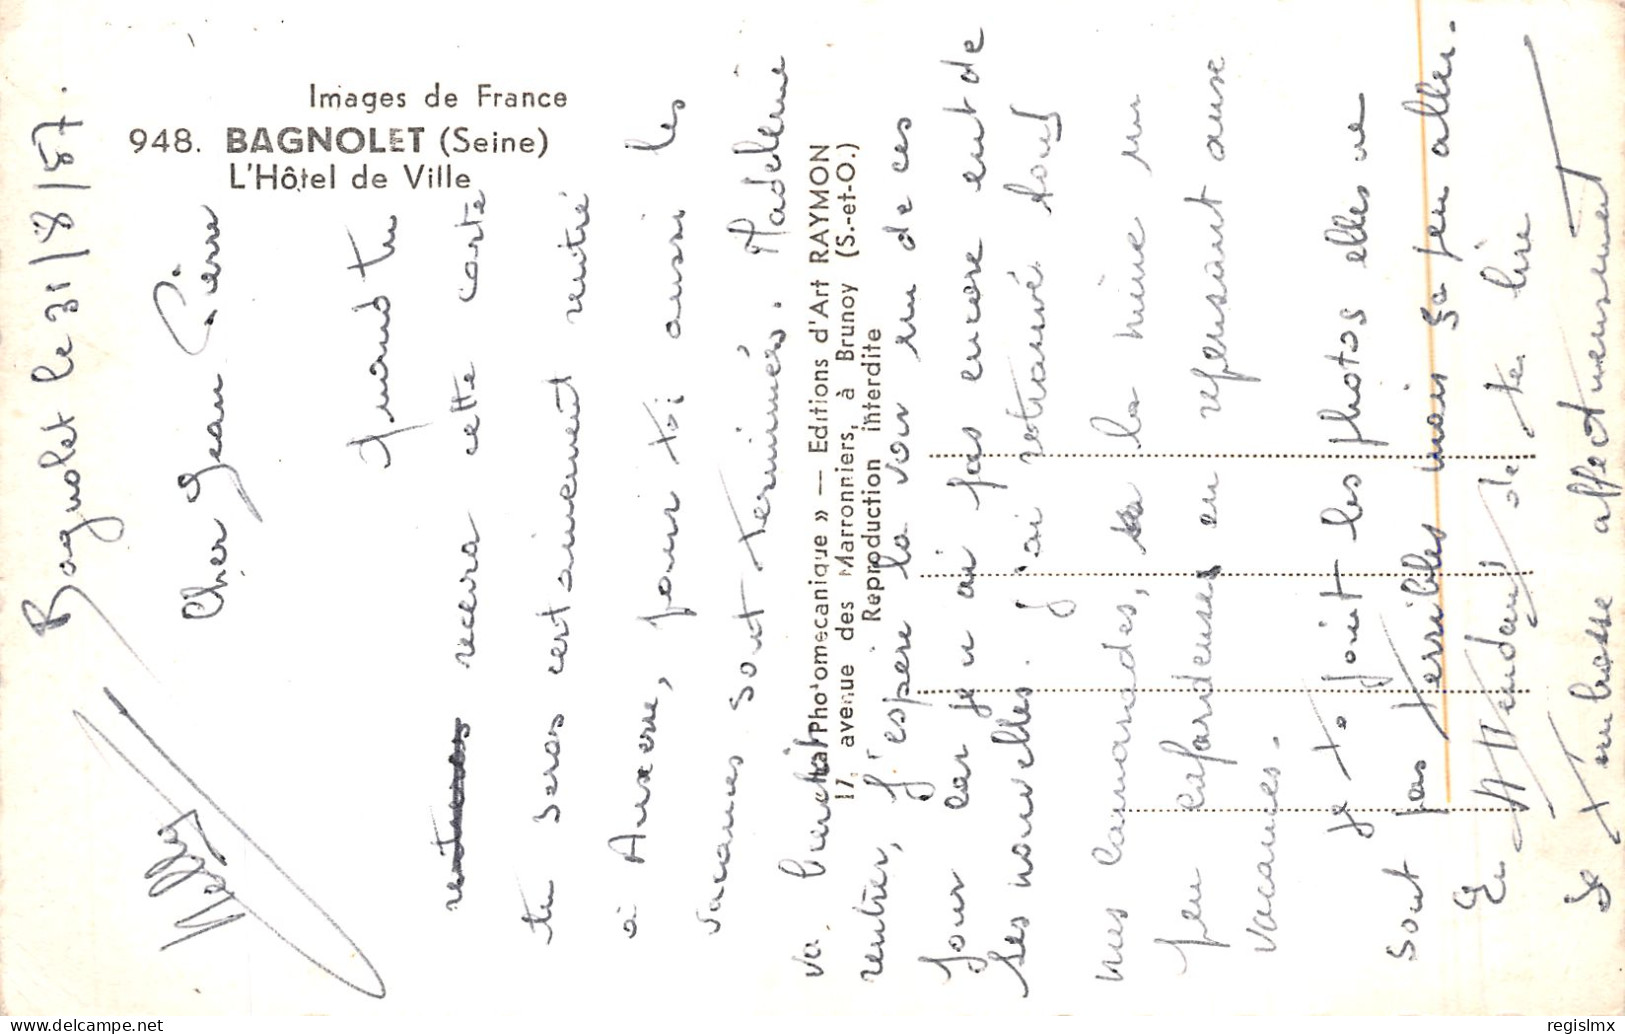 Images de France
948. BAGNOLET (Seine)
L'Hôtel de Ville
« La Photomécanique » — Editions d'Art RAYMON
17, avenue des Marronniers, à Brunoy (S.-et-O.)
Reproduction interdite
Bagnolet le 31/8/57.
Cher Jean Pierre
Quand tu
recevra cette carte
tu seras certainement rentré
à Auxerre, pour toi aussi les
vacances sont terminées. Madeleine
va bientôt
rentrer, J'espère la voir un de ces
jour car je n ai pas encore eut de
ses nouvelles. J'ai retrouvé tous
mes camarades, la même un
peu cafardeuses en repensant aux
vacances.
je te joint les photos elles ne
sont pas terribles mais sa peu aller.
En Attendant de te lire
Je t'embrasse affectueusement
Nelly
regislmx